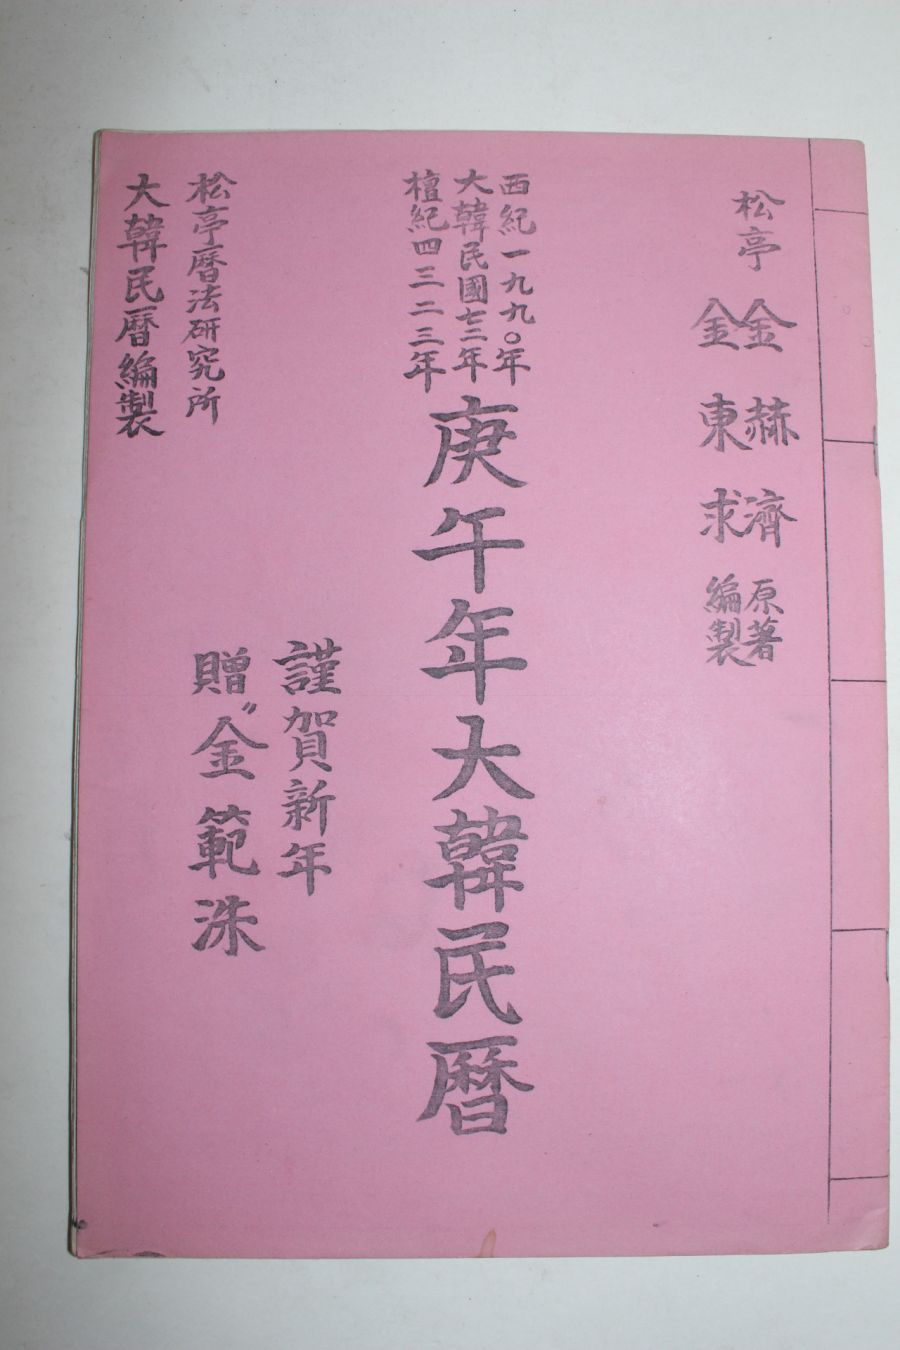 松亭
金赫濟 原著
金東求 編製
西紀一九九〇年
大韓民國七三年
檀紀四三二三年
庚午年大韓民暦
謹賀新年
贈〃金範洙
松亭暦法研究所
大韓民暦編製